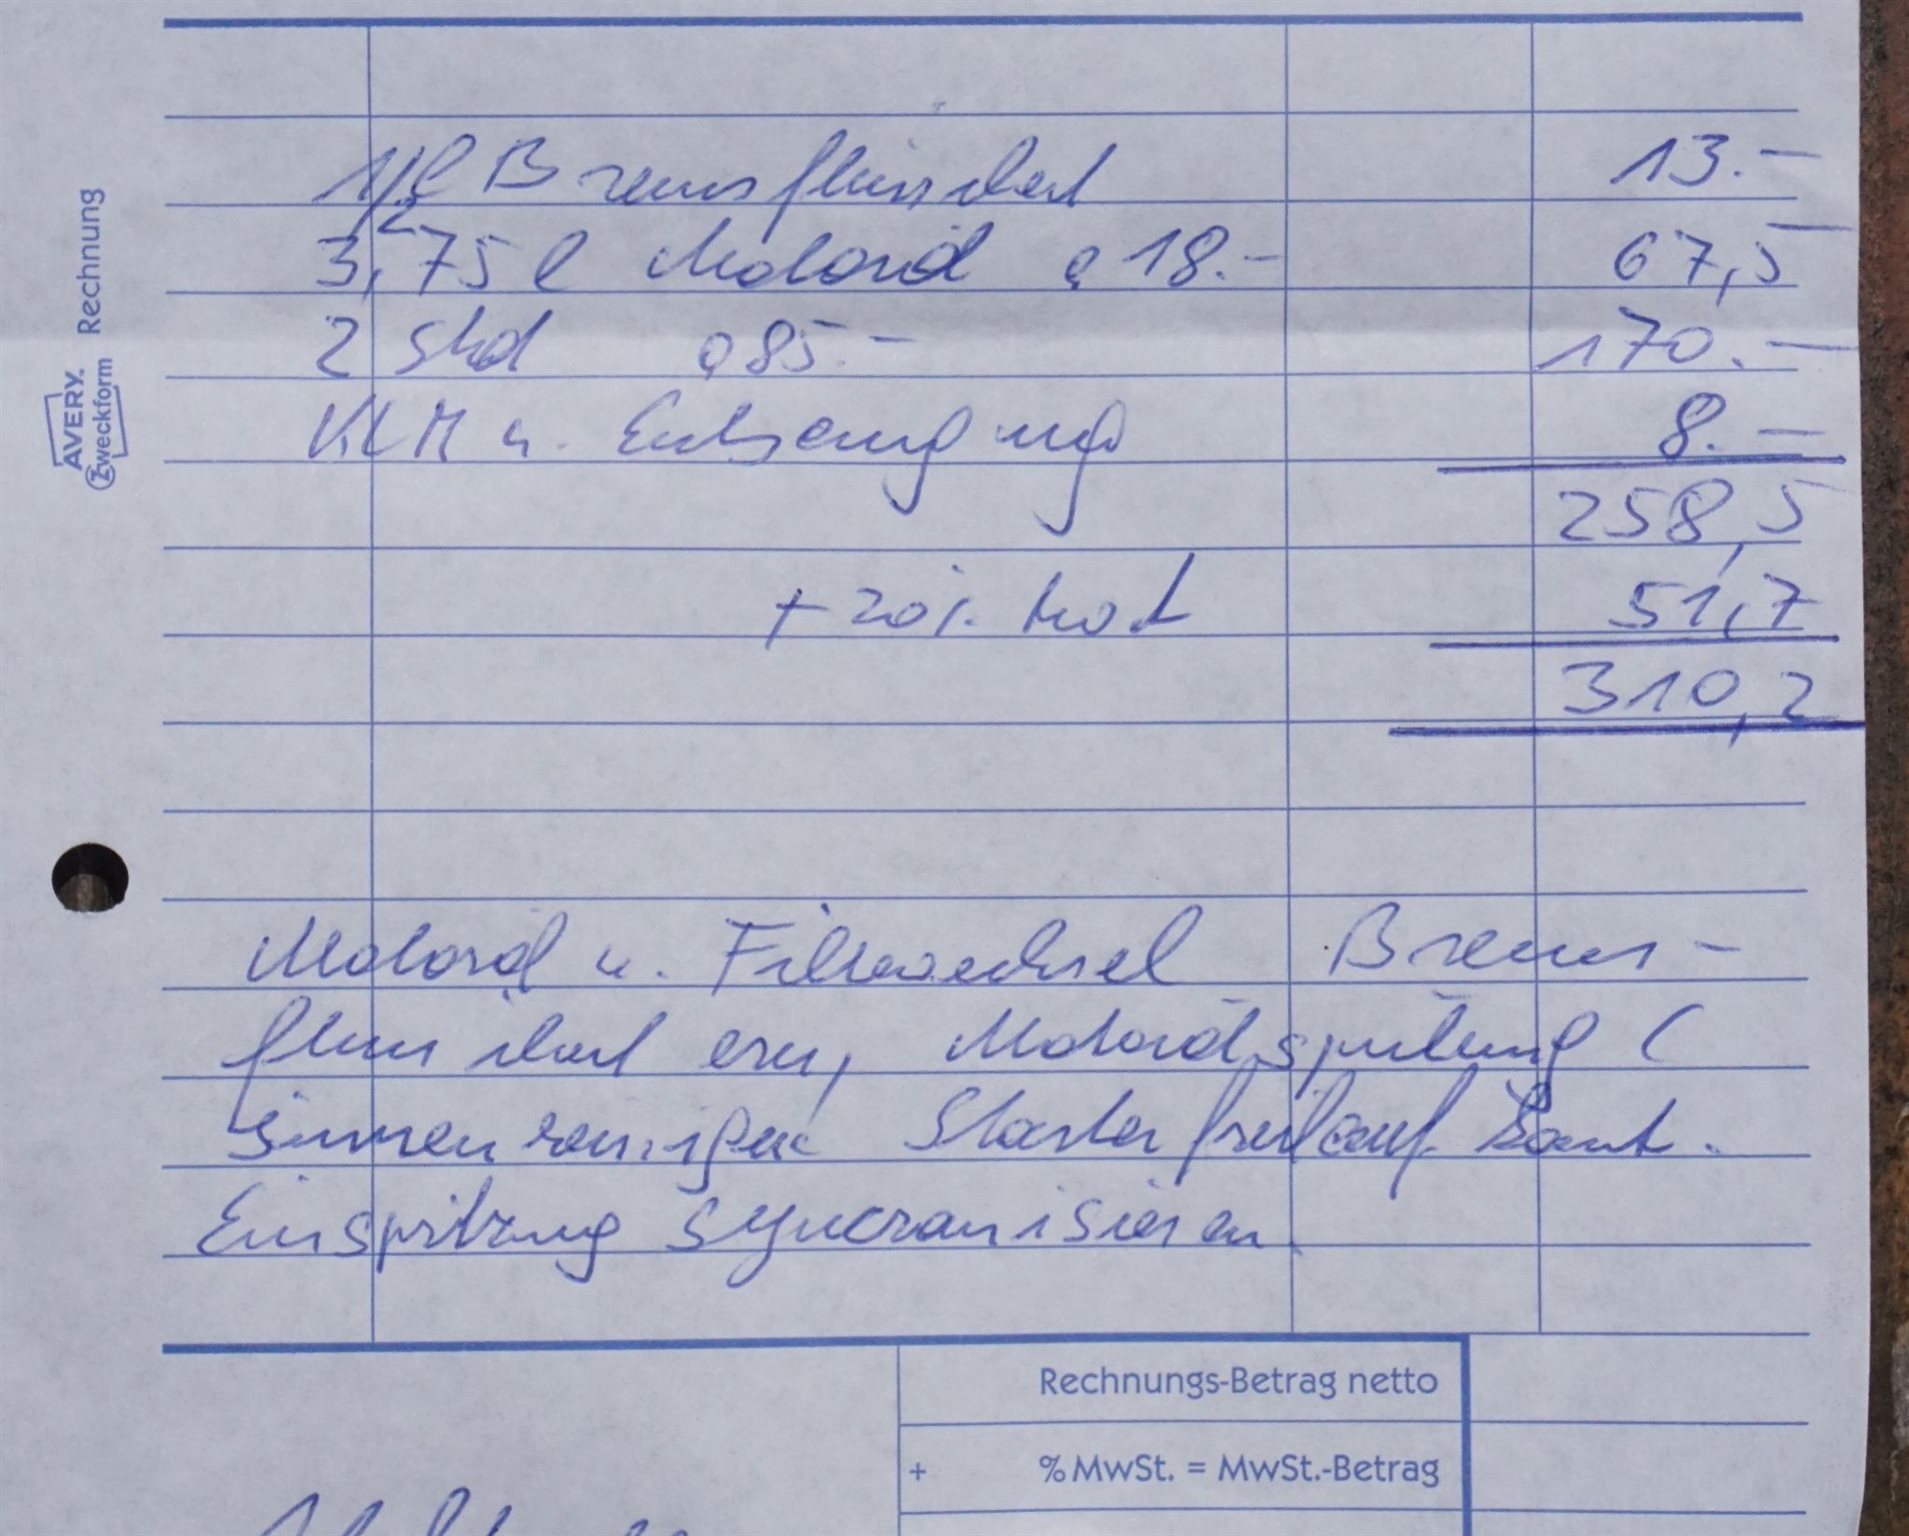 1/2 l Bremsflüssikeit 13.-
3,75 l Motoröl a 18.- 67,5
2 Std a 85.- 170.-
KLM u. Entsorgung 8.-
258,5
+ 20%. Mwt 51,7
310,2
Motoröl u. Filterwechsel Brems-
flüssikeit ern, Motorölspülung (
innenreinigen Starterfreilauf kont.
Einspritzung Syncronisieren
Rechnungs-Betrag netto
+ % MwSt. = MwSt.-Betrag
AVERY Zweckform Rechnung